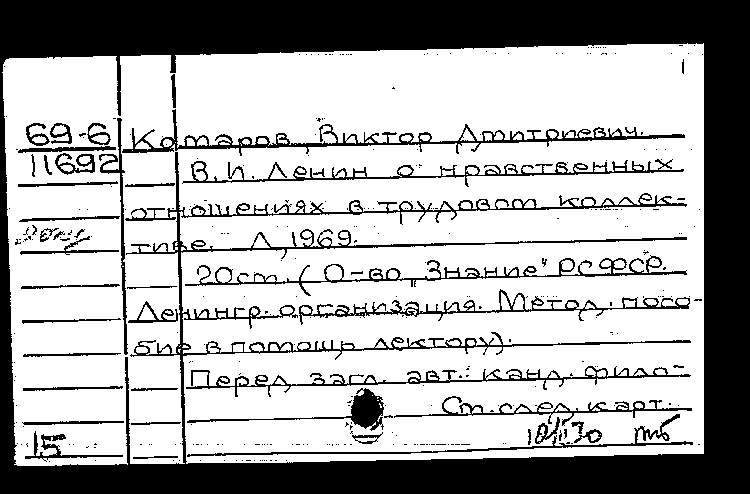 69-6 Комаров, Виктор Дмитриевич.
11692 В.И. Ленин о нравственных
отношениях в трудовом коллек-
тиве. Л., 1969.
20 ст. (О-во „Знание" РСФСР.
Ленингр. организация. Метод. посо-
бие в помощь лектору).
Перед загл. авт.: канд. фило-
См. след. карт.
15